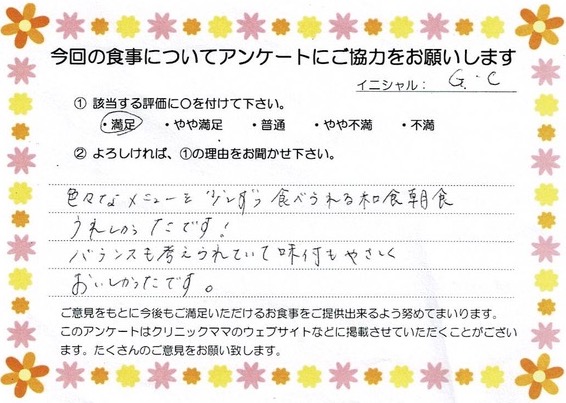 今回の食事についてアンケートにご協力をお願いします
イニシャル： G.C
① 該当する評価に〇を付けて下さい。
・満足 ・やや満足 ・普通 ・やや不満 ・不満
② よろしければ、①の理由をお聞かせ下さい。
色々なメニューを少しずつ食べられる和食朝食
うれしかったです！
バランスも考えられていて味付もやさしく
おいしかったです。
ご意見をもとに今後もご満足いただけるお食事をご提供出来るよう努めてまいります。
このアンケートはクリニックママのウェブサイトなどに掲載させていただくことがござい
ます。たくさんのご意見をお願い致します。